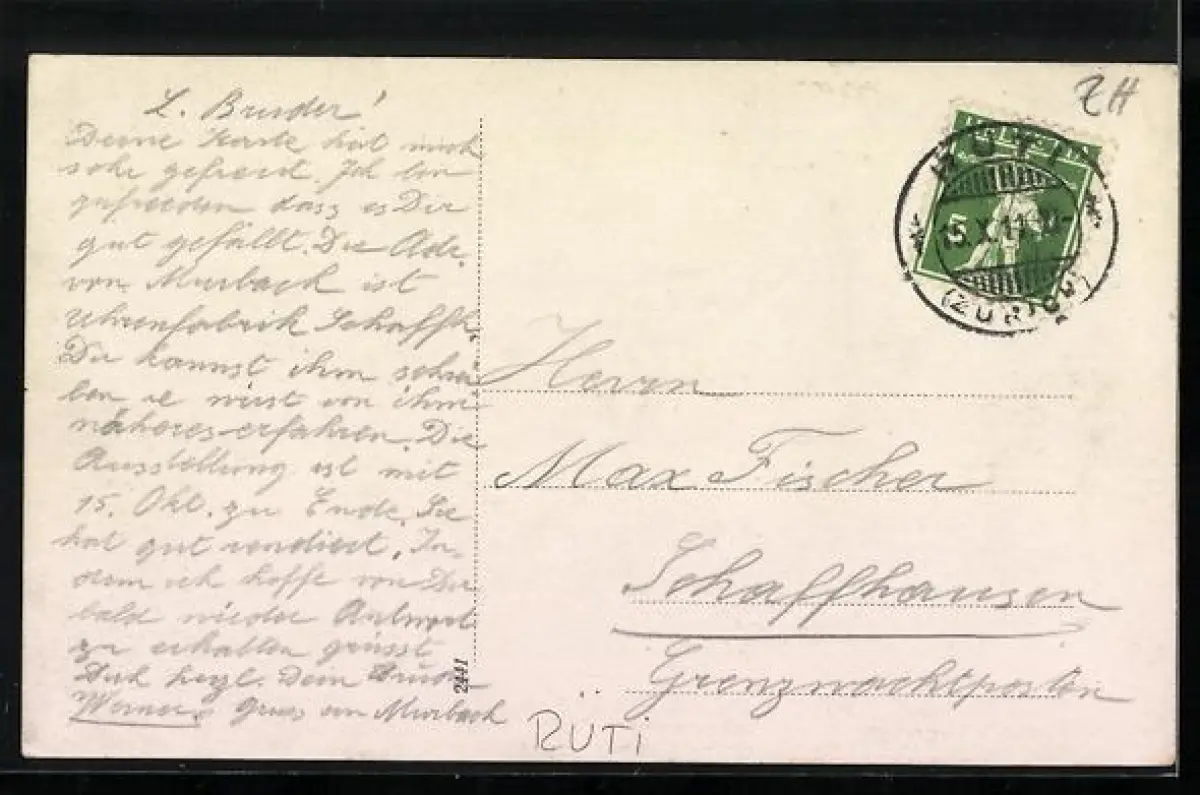 L. Bruder!
Deine Karte hat mich
sehr gefreut. Ich bin
zufrieden dass es Dir
gut gefällt. Die Adr.
von Murbach ist
Uhrenfabrik Schaffh.
Du kannst ihm schrei
ben u. wirst von ihm
näheres erfahren. Die
Ausstellung ist mit
15. Okt. zu Ende. Sie
hat gut rendiert. In-
dem ich hoffe von Dir
bald wieder Antwort
zu erhalten grüsst
Dich herzl. Dein Bruder
Werner. Gruss von Murbach
2441
ZH
HELVETIA
5
RÜTI
(ZÜRICH)
Herrn
Max Fischer
Schaffhausen
Grenzwachtposten
RÜTi